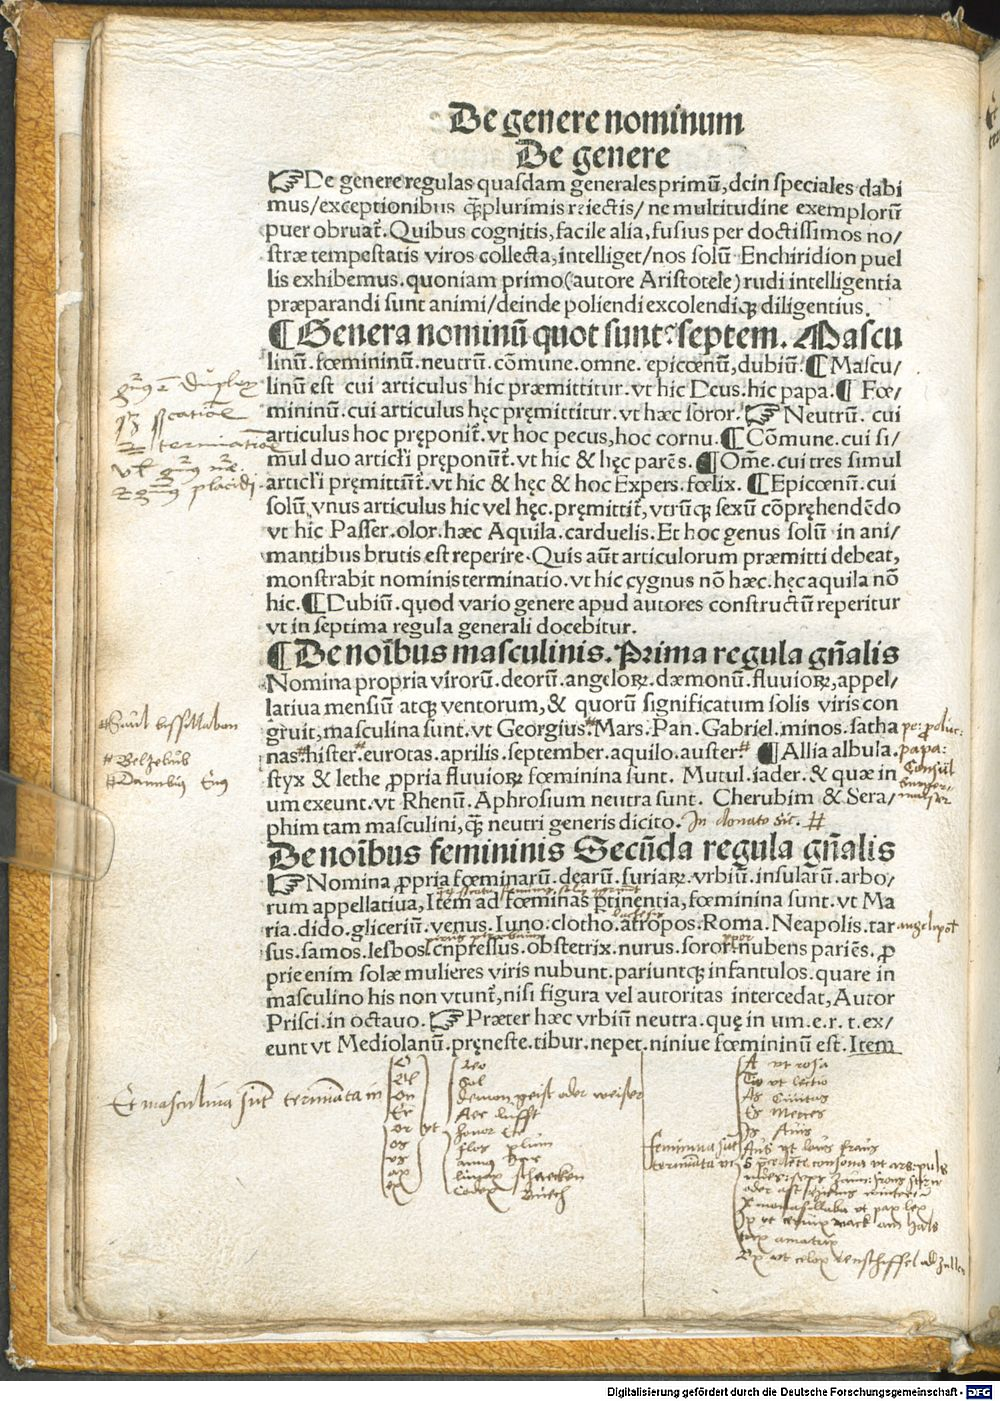 De genere nominum
De genere
☞De genere regulas quasdam generales primū, dein speciales dabi
mus/exceptionibus q̄plurimis reiectis/ ne multitudine exemplorū
puer obruat̄. Quibus cognitis, facile alia, fusius per doctissimos no/
stræ tempestatis viros collecta, intelliget/nos solū Enchiridion puel
lis exhibemus. quoniam primo(autore Aristotele) rudi intelligentia
præparandi sunt animi/deinde poliendi excolendiq; diligentius.
¶Genera nominū quot sunt? septem. Mascu
linū. fœmininū. neutrū. cōmune. omne. epicœnū, dubiū. ¶ Mascu/
linū est cui articulus hic præmittitur. vt hic Deus. hic papa. ¶ Fœ/
mininū. cui articulus hęc pręmittitur. vt hæc soror. ☞ Neutrū. cui
articulus hoc pręponit̄. vt hoc pecus, hoc cornu. ¶ Cōmune. cui si/
mul duo articl'i pręponūt̄. vt hic & hęc parēs. ¶ Om̄e. cui tres simul
articl'i pręmittūt̄. vt hic & hęc & hoc Expers. fœlix. ¶Epicœnū. cui
solū, vnus articulus hic vel hęc. pręmittit̄, vtrūq; sexū cōpręhendēdo
vt hic Passer. olor. hæc Aquila. carduelis. Et hoc genus solū in ani/
mantibus brutis est reperire. Quis aūt articulorum præmitti debeat,
monstrabit nominis terminatio. vt hic cygnus nō hæc. hęc aquila nō
hic. ¶Dubiū. quod vario genere apud autores constructū reperitur
vt in septima regula generali docebitur.
¶De noībus masculinis. Prima regula gn̄alis
Nomina propria virorū. deorū. angeloꝝ. dæmonū. fluuioꝝ, appel/
latiua mensiū atq; ventorum, & quorū significatum solis viris con
gruit, masculina sunt. vt Georgius# Mars. Pan. Gabriel. minos. satha
nas# hister# eurotas. aprilis. september. aquilo. auster# ¶ Allia albula.
styx & lethe ꝓpria fluuioꝝ fœminina sunt. Mutul. iader. & quæ in
um exeunt. vt Rhenū. Aphrosium neutra sunt. Cherubim & Sera/
phim tam masculini, q̄ neutri generis dicito. In donato sic. #
papa:
Consul
# Saul bissillabon
# Belzebub
# Danubius
De noībus femininis Secūda regula gn̄alis
☞ Nomina ꝓpria fœminarū. dearū. furiaꝝ. vrbiū. insularū. arbo/
rum appellatiua, Item ad fœminas ꝑtinentia, fœminina sunt. vt Ma
ria. dido. gliceriū. venus. Iuno. clotho. atropos. Roma. Neapolis. tar
sus. samos. lesbos. cupressus. obstetrix. nurus. soror. nubens pariēs. ꝓ
prie enim solæ mulieres viris nubunt. pariuntq; infantulos. quare in
masculino his non vtunt̄, nisi figura vel autoritas intercedat, Autor
Prisci. in octauo. ☞ Præter hæc vrbiū neutra. quę in um. e. r. t. ex/
eunt vt Mediolanū. pręneste. tibur. nepet. niniue fœmininū est. Item
Et masculina sūt terminata in
O
Ol
On
Er
or vt
os
vs
ax
ex
Leo
Sol
demon geist oder weiser
Aer lufft
honor Ere
flos plum
annus Jar
Codex Buech
feminina sūt
terminata in
A vt rosa
Tio vt lectio
As Ciuitas
Es Merces
Is Auis
Aus vt laus fraus
S
X monosillaba vt pax lex
trix amatrix
Digitalisierung gefördert durch die Deutsche Forschungsgemeinschaft - DFG